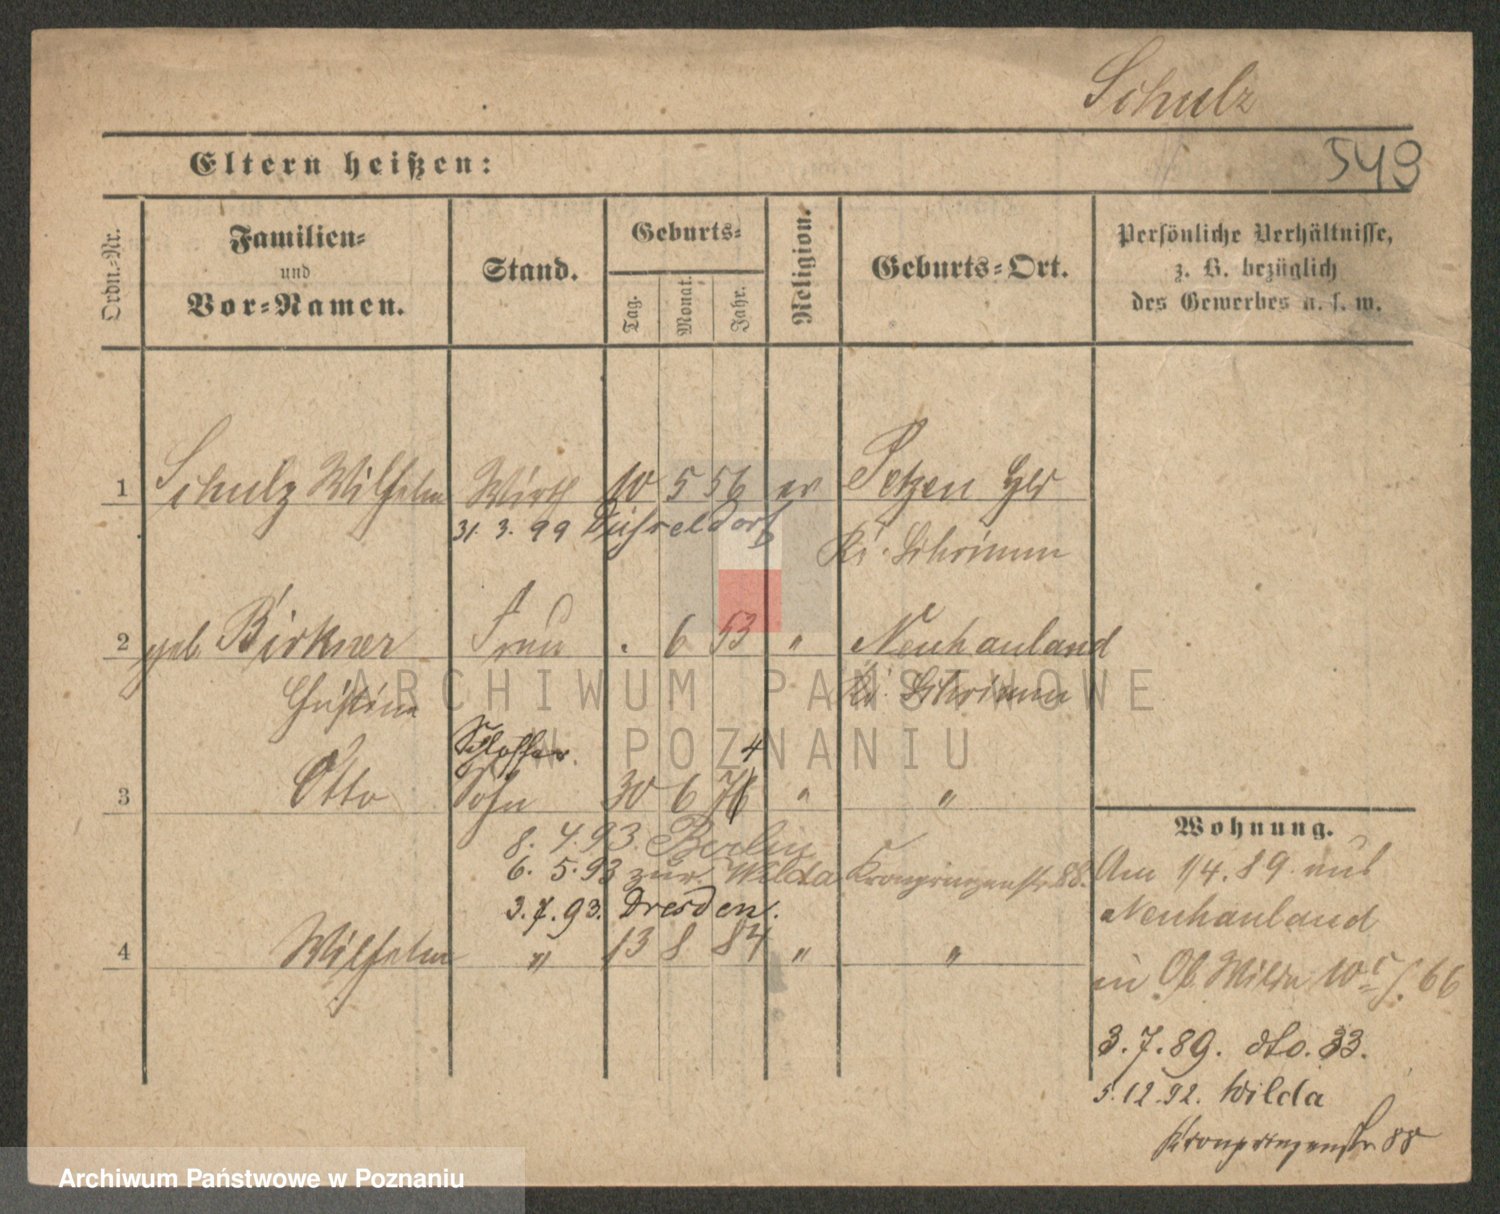 Schulz
Eltern heißen:
549
Ordn.-Nr.
Familien-
und
Vor-Namen.
Stand.
Geburts-
Tag.
Monat.
Jahr.
Religion.
Geburts-Ort.
Persönliche Verhältnisse,
z. B. bezüglich
des Gewerbes u. s. w.
1 Schulz Wilhelm Wirth 10 5 56 ev Petzen
31. 3. 99 Düsseldorf Kr. Schrimm
2 geb. Birkner Frau . 6 53 " Neuhauland
Christine Kr. Schrimm
ARCHIWUM PAŃSTWOWE
W POZNANIU
Schlosser. 4
3 Otto Sohn 30 6 " "
8. 4. 93. Berlin
6. 5. 93 zur. Wilda Kronprinzenstr. 88.
3. 7. 93. Dresden.
4 Wilhelm " 13 8 84 " "
Wohnung.
Am 1/4. 89. aus
Neuhauland
in Ob. Wilda 66
3. 7. 89. dto. 33.
5. 12. 92. Wilda
Kronprinzenstr. 88
Archiwum Państwowe w Poznaniu